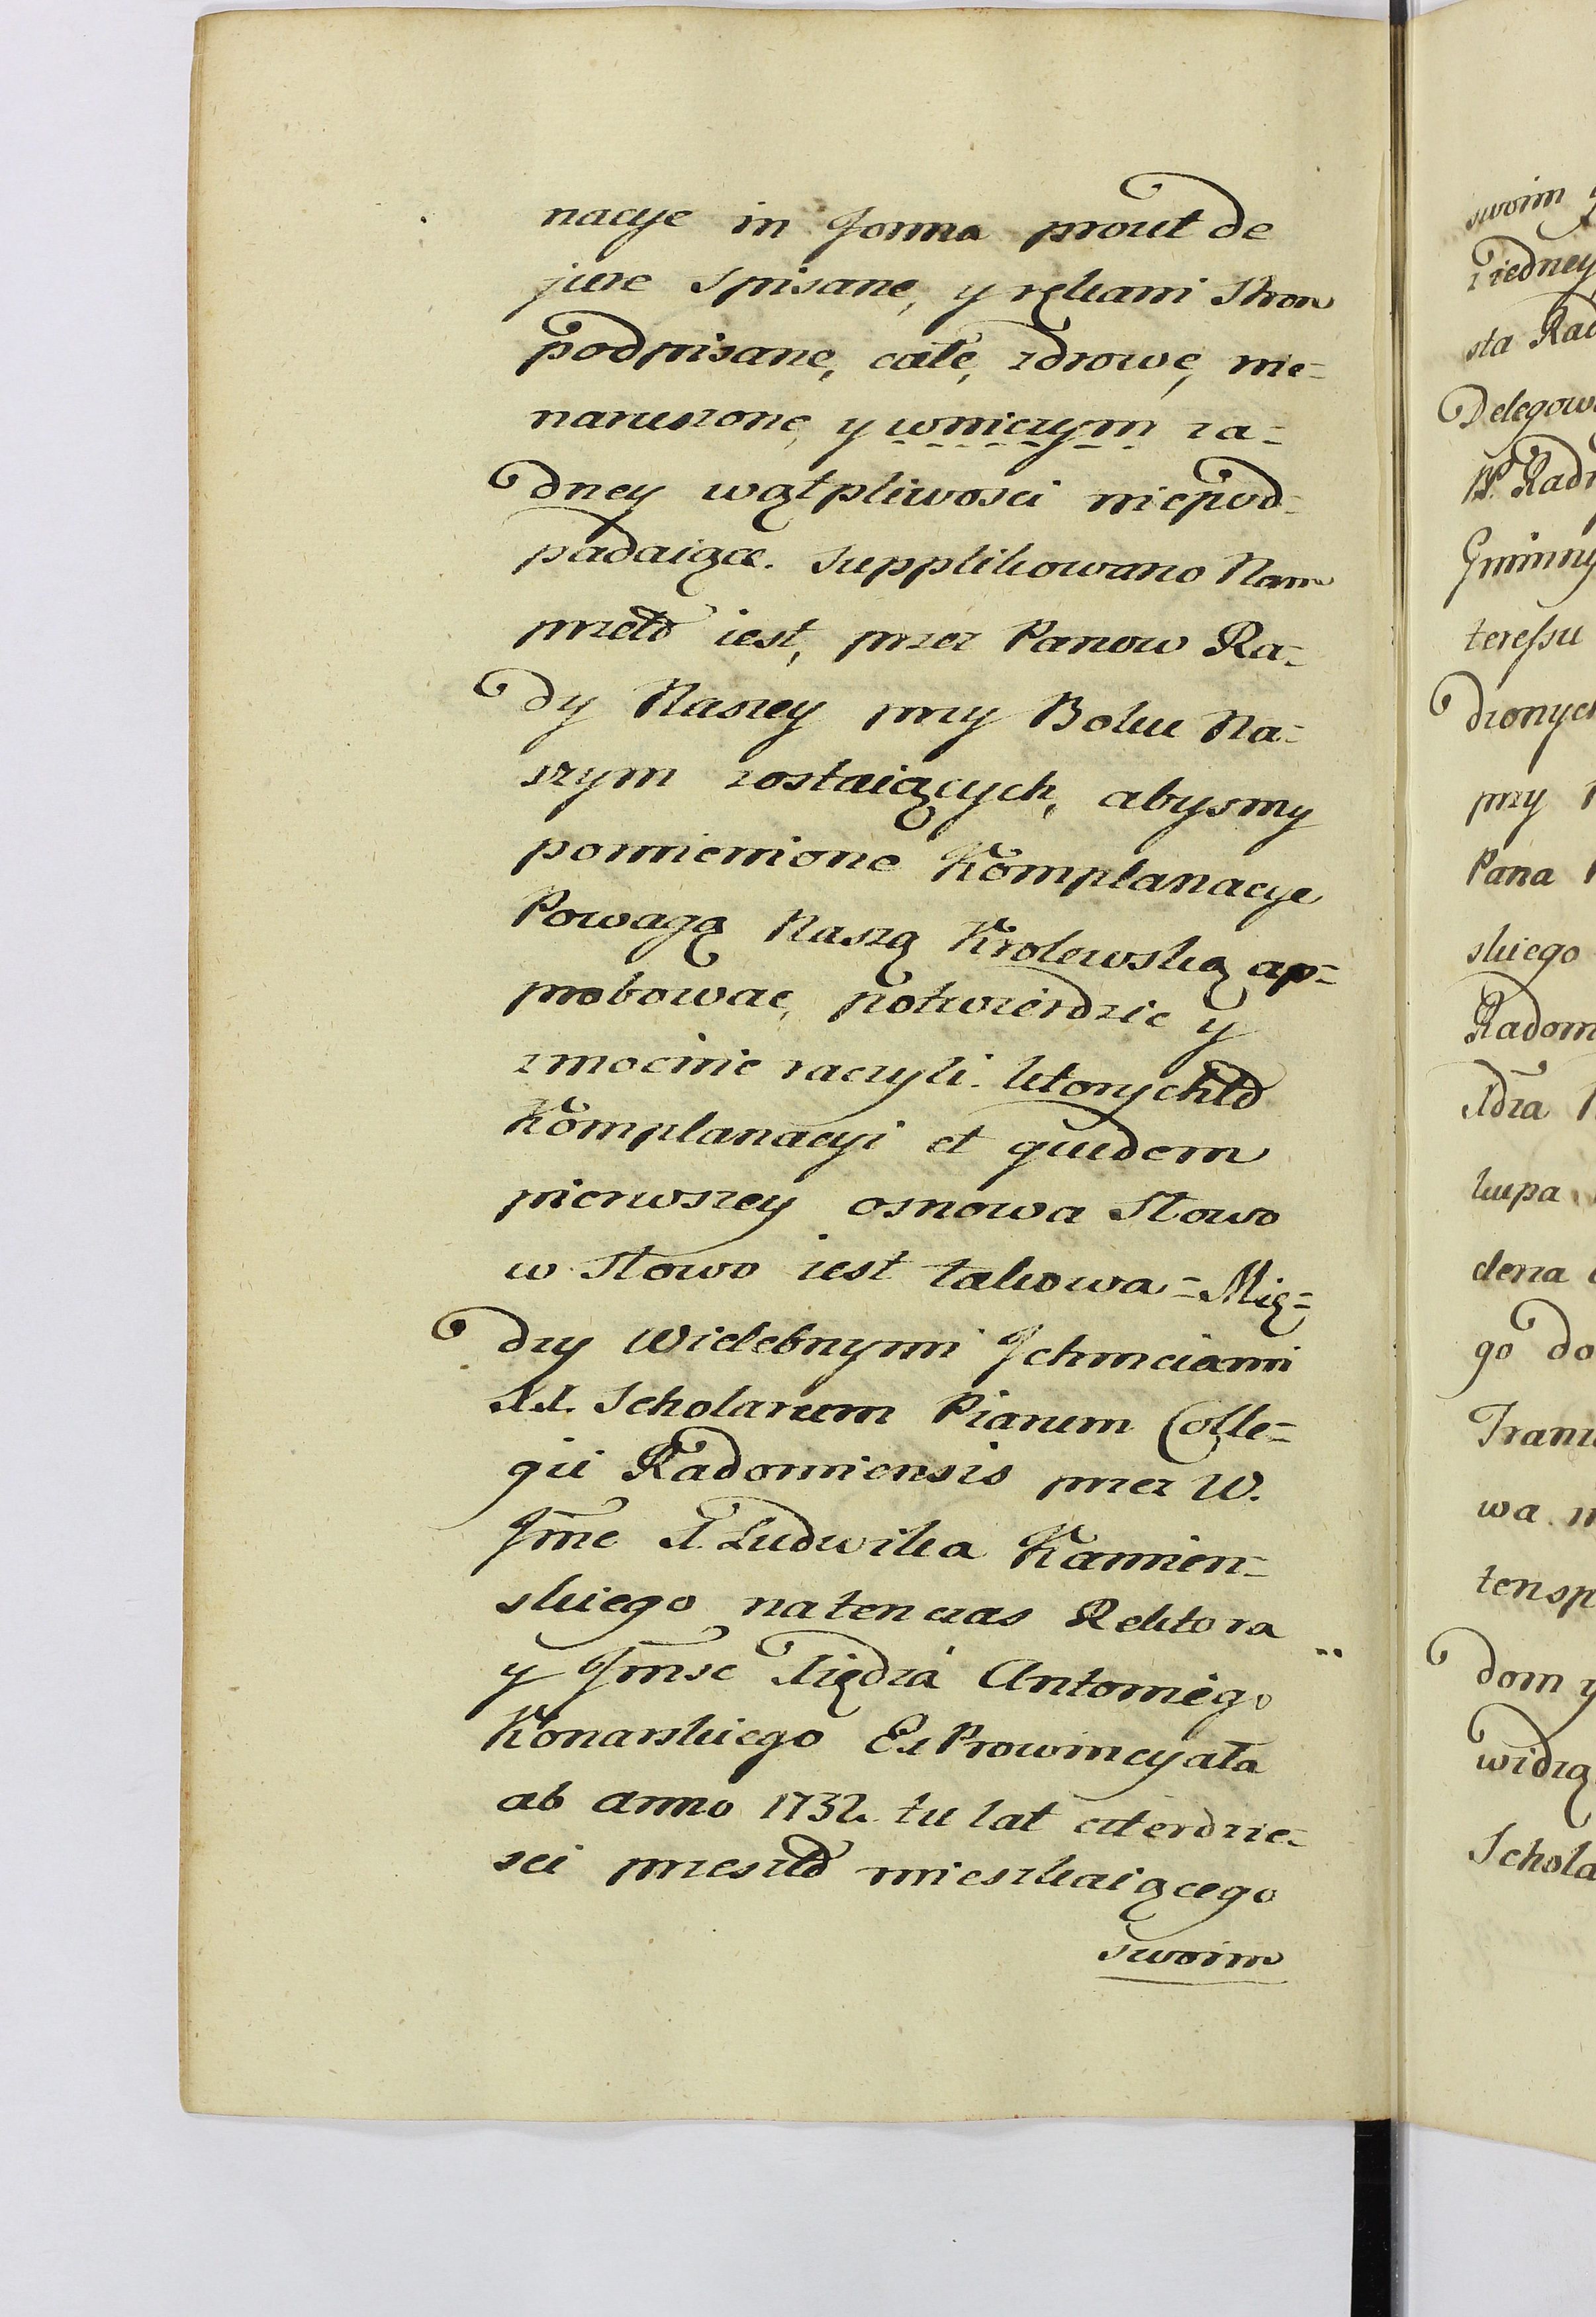 nacye in forma prout de
jure spisane, y rękami Stron
podpisane, całe, zdrowe, nie=
naruszone, y wniczym ża=
dney wątpliwosci niepod=
padaiące. Supplikowano Nam
przeto iest, przez Panow Ra=
dy Naszey przy Boku Na=
szym zostaiących, abysmy
pomienione Komplanacye
Powagą Naszą Krolewską ap=
probowac, potwierdzic y
zmocnic raczyli. ktorychto
Komplanacyi et quidem
pierwszey osnowa Słowo
w Słowo iest takowa = Mię=
dzy Wielebnymi Jchmciami
XX. Scholarum Piarum Colle=
gii Radomiensis przez W.
Jmc X. Ludwika Kamien=
skiego natenczas Rektora
y Jmsc Xiędza Antoniego
Konarskiego ExProwincyała
ab anno 1732. tu lat czterdzie=
sci przeszło mieszkaiącego
swoim
swoim
z iedney
sta Rad
Delegow
Gminny
teressu
dzonych
przy
Pana
skiego
Radom
Xdza
kupa
dera
go do
Franc
wa
tensp
dom y
widzą
Schola